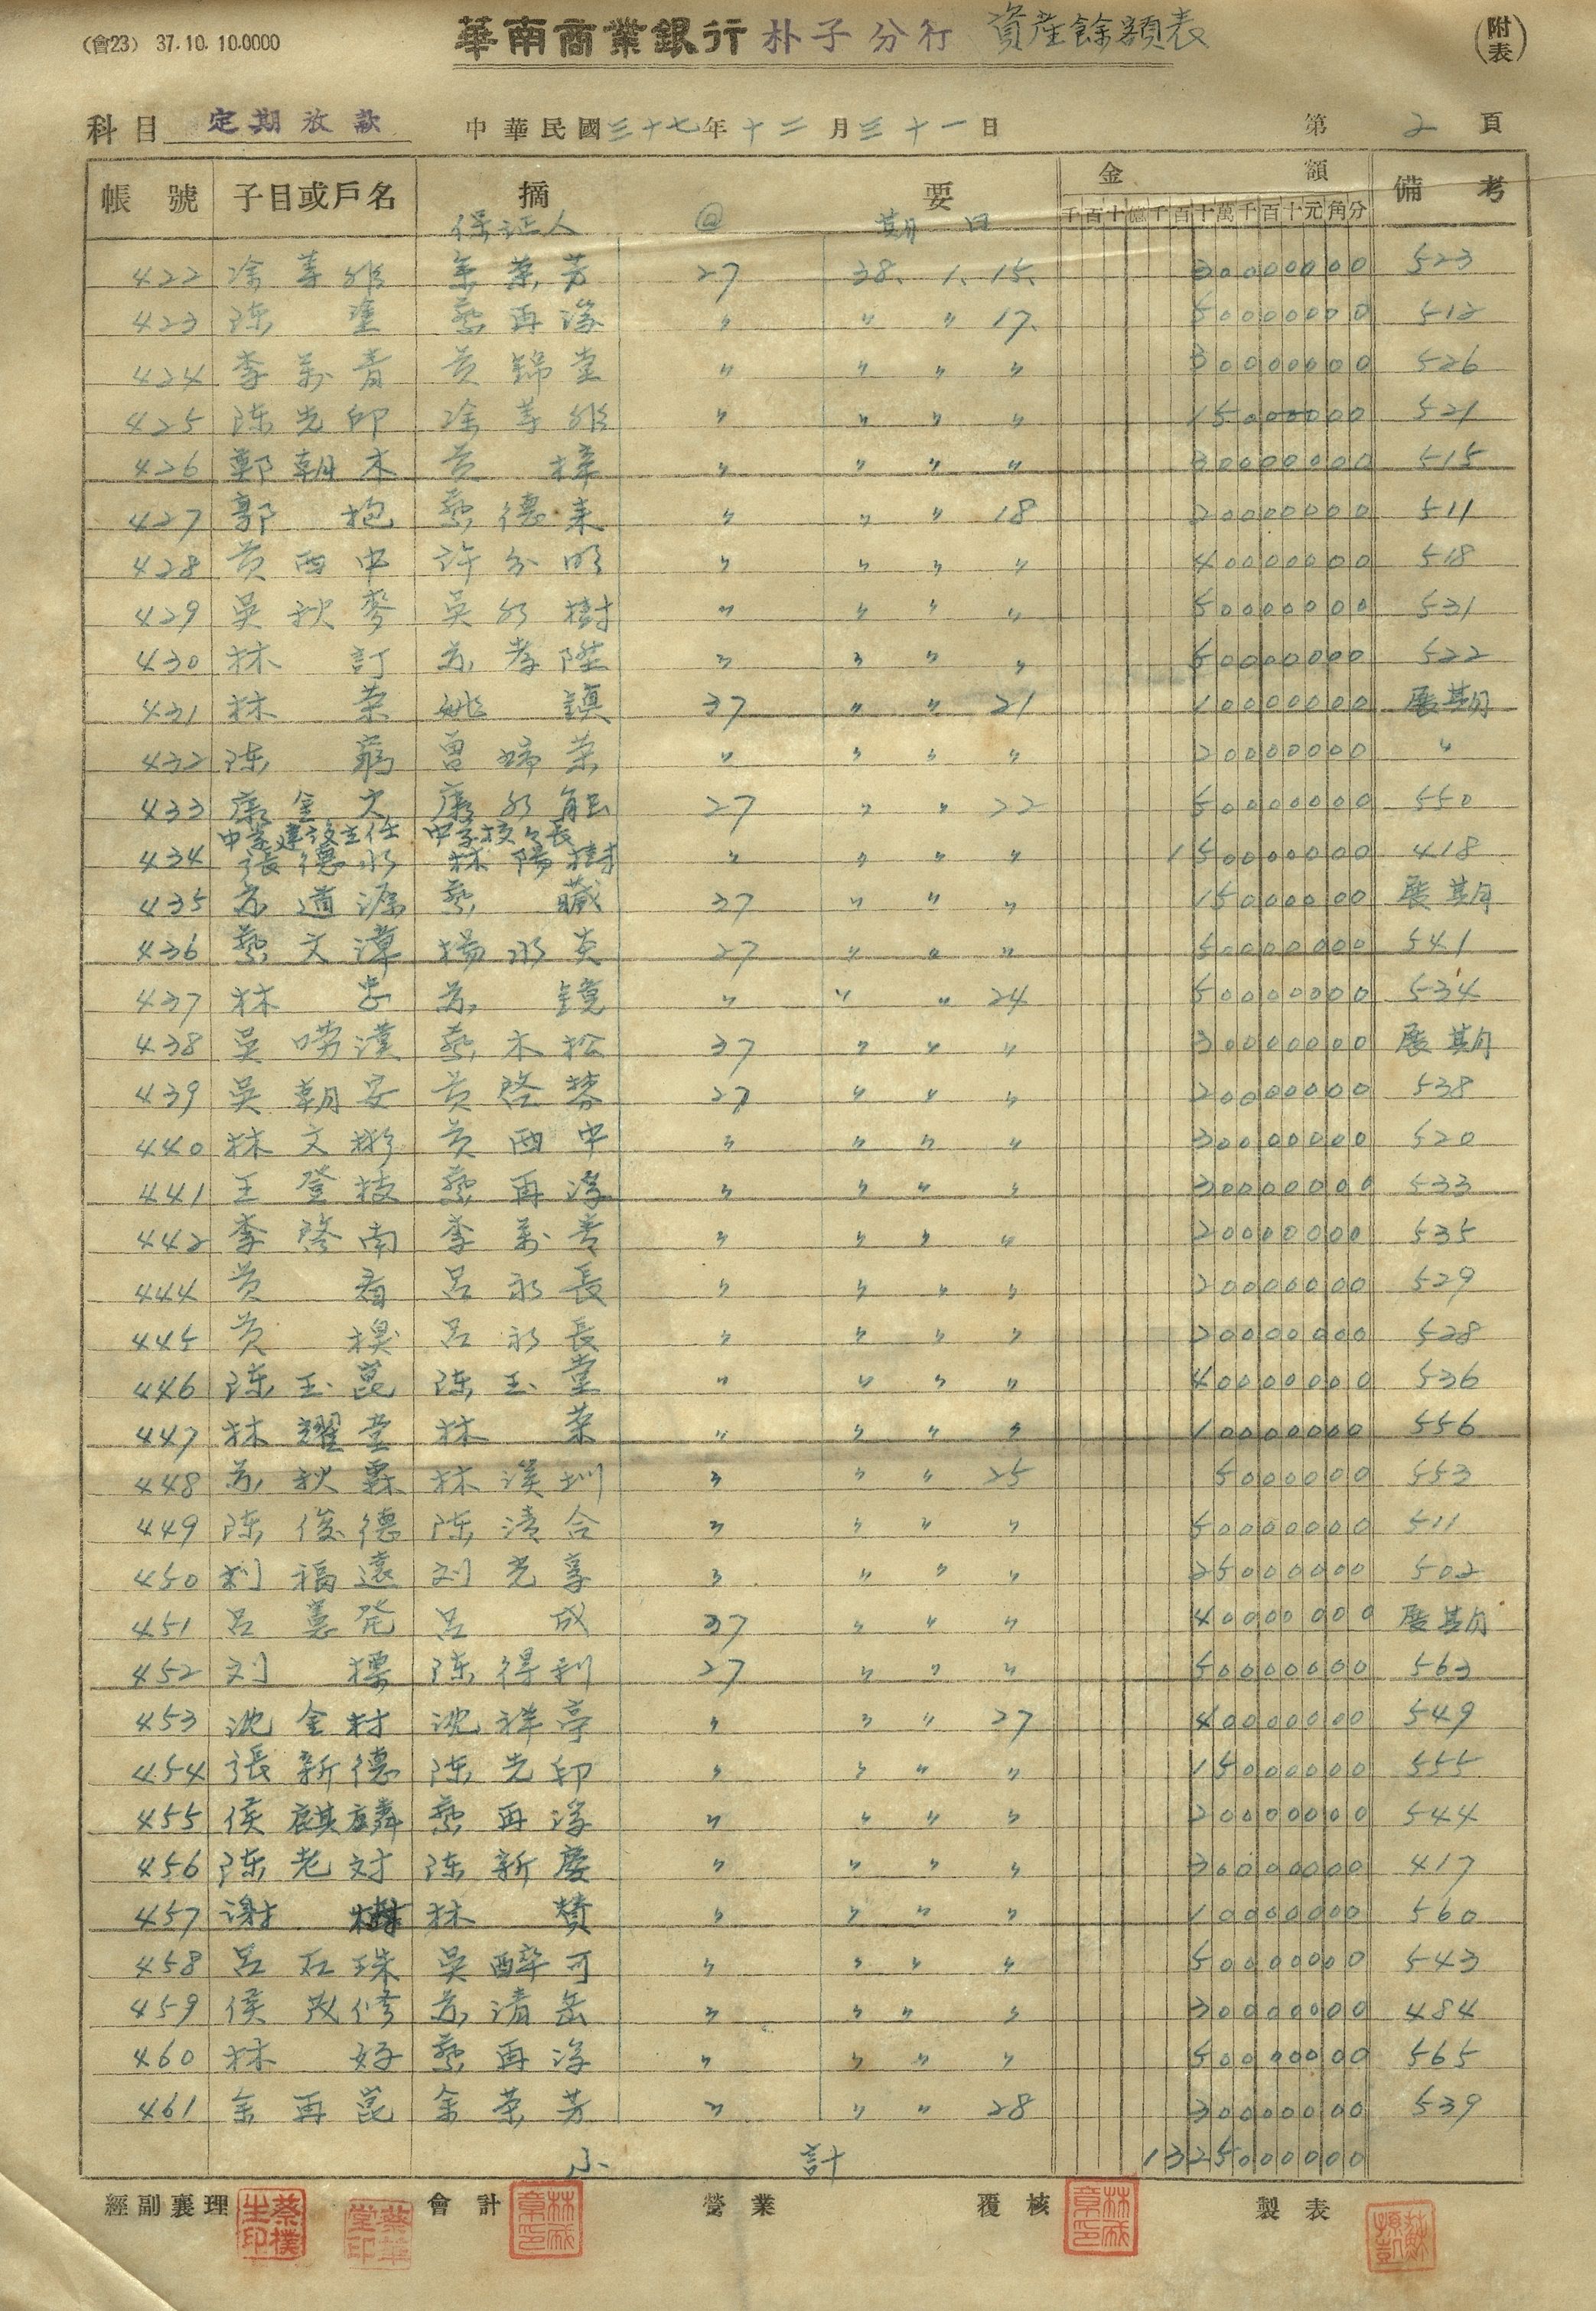 (會23) 37.10.10.0000
華南商業銀行 朴子分行 資產餘額表
(附表)
科目 定期放款 中華民國三十七年十二月三十一日 第 2 頁
帳號 子目或戶名 摘要 金額 備考
千百十億千百十萬千百十元角分
保証人 @ 期日
422 27 38. 1. 15. 30000000 523
423 陳塗 蔡再添 〃 〃 〃 17. 50000000 512
424 李萬青 黃錦堂 〃 〃 〃 〃 30000000 526
425 陳光卯 〃 〃 〃 〃 15000000 521
426 鄭朝木 黃樟 〃 〃 〃 〃 30000000 515
427 郭抱 蔡德来 〃 〃 〃 18 20000000 511
428 黃西中 許分明 〃 〃 〃 〃 40000000 518
429 吳秋 吳水樹 〃 〃 〃 〃 50000000 531
430 林訂 蘇孝陞 〃 〃 〃 〃 50000000 522
431 林榮 姚鎮 37 〃 〃 21 10000000 展期
432 陳 曾 〃 〃 〃 〃 20000000 〃
433 金火 水 27 〃 〃 22 50000000 550
中学建設主任 中学校々長
434 張德水 林陽樹 〃 〃 〃 〃 150000000 418
435 蘇道源 蔡藏 37 〃 〃 〃 15000000 展期
436 蔡文漳 楊水炎 27 〃 〃 〃 50000000 541
437 林忠 蘇鏡 〃 〃 〃 24 50000000 534
438 吳嘮漢 蔡木松 37 〃 〃 〃 30000000 展期
439 吳朝安 黃啓 27 〃 〃 〃 20000000 538
440 林文彬 黃西中 〃 〃 〃 〃 30000000 520
441 王登枝 蔡再添 〃 〃 〃 〃 30000000 533
442 李啓南 李萬青 〃 〃 〃 〃 20000000 535
444 黃看 呂永長 〃 〃 〃 〃 20000000 529
445 黃 呂永長 〃 〃 〃 〃 20000000 528
446 陳玉崑 陳玉堂 〃 〃 〃 〃 40000000 536
447 林耀堂 林葉 〃 〃 〃 〃 10000000 556
448 蘇秋霖 林漢圳 〃 〃 〃 25 5000000 553
449 陳俊德 陳清合 〃 〃 〃 〃 50000000 511
450 刘福遠 刘光享 〃 〃 〃 〃 25000000 502
451 呂萬発 呂成 37 〃 〃 〃 40000000 展期
452 刘標 陳得利 27 〃 〃 〃 50000000 563
453 沈金村 沈祥亭 〃 〃 〃 27 40000000 549
454 張新德 陳光卯 〃 〃 〃 〃 15000000 555
455 侯麒麟 蔡再添 〃 〃 〃 〃 20000000 544
456 陳老对 陳新慶 〃 〃 〃 〃 30000000 417
457 謝樹 林贊 〃 〃 〃 〃 10000000 560
458 呂石珠 吳醉可 〃 〃 〃 〃 50000000 543
459 侯改修 蘇清岳 〃 〃 〃 〃 30000000 484
460 林好 蔡再添 〃 〃 〃 〃 50000000 565
461 余再崑 余榮芳 〃 〃 〃 28 30000000 539
小計 1325000000
經副襄理 會計 營業 覆核 製表